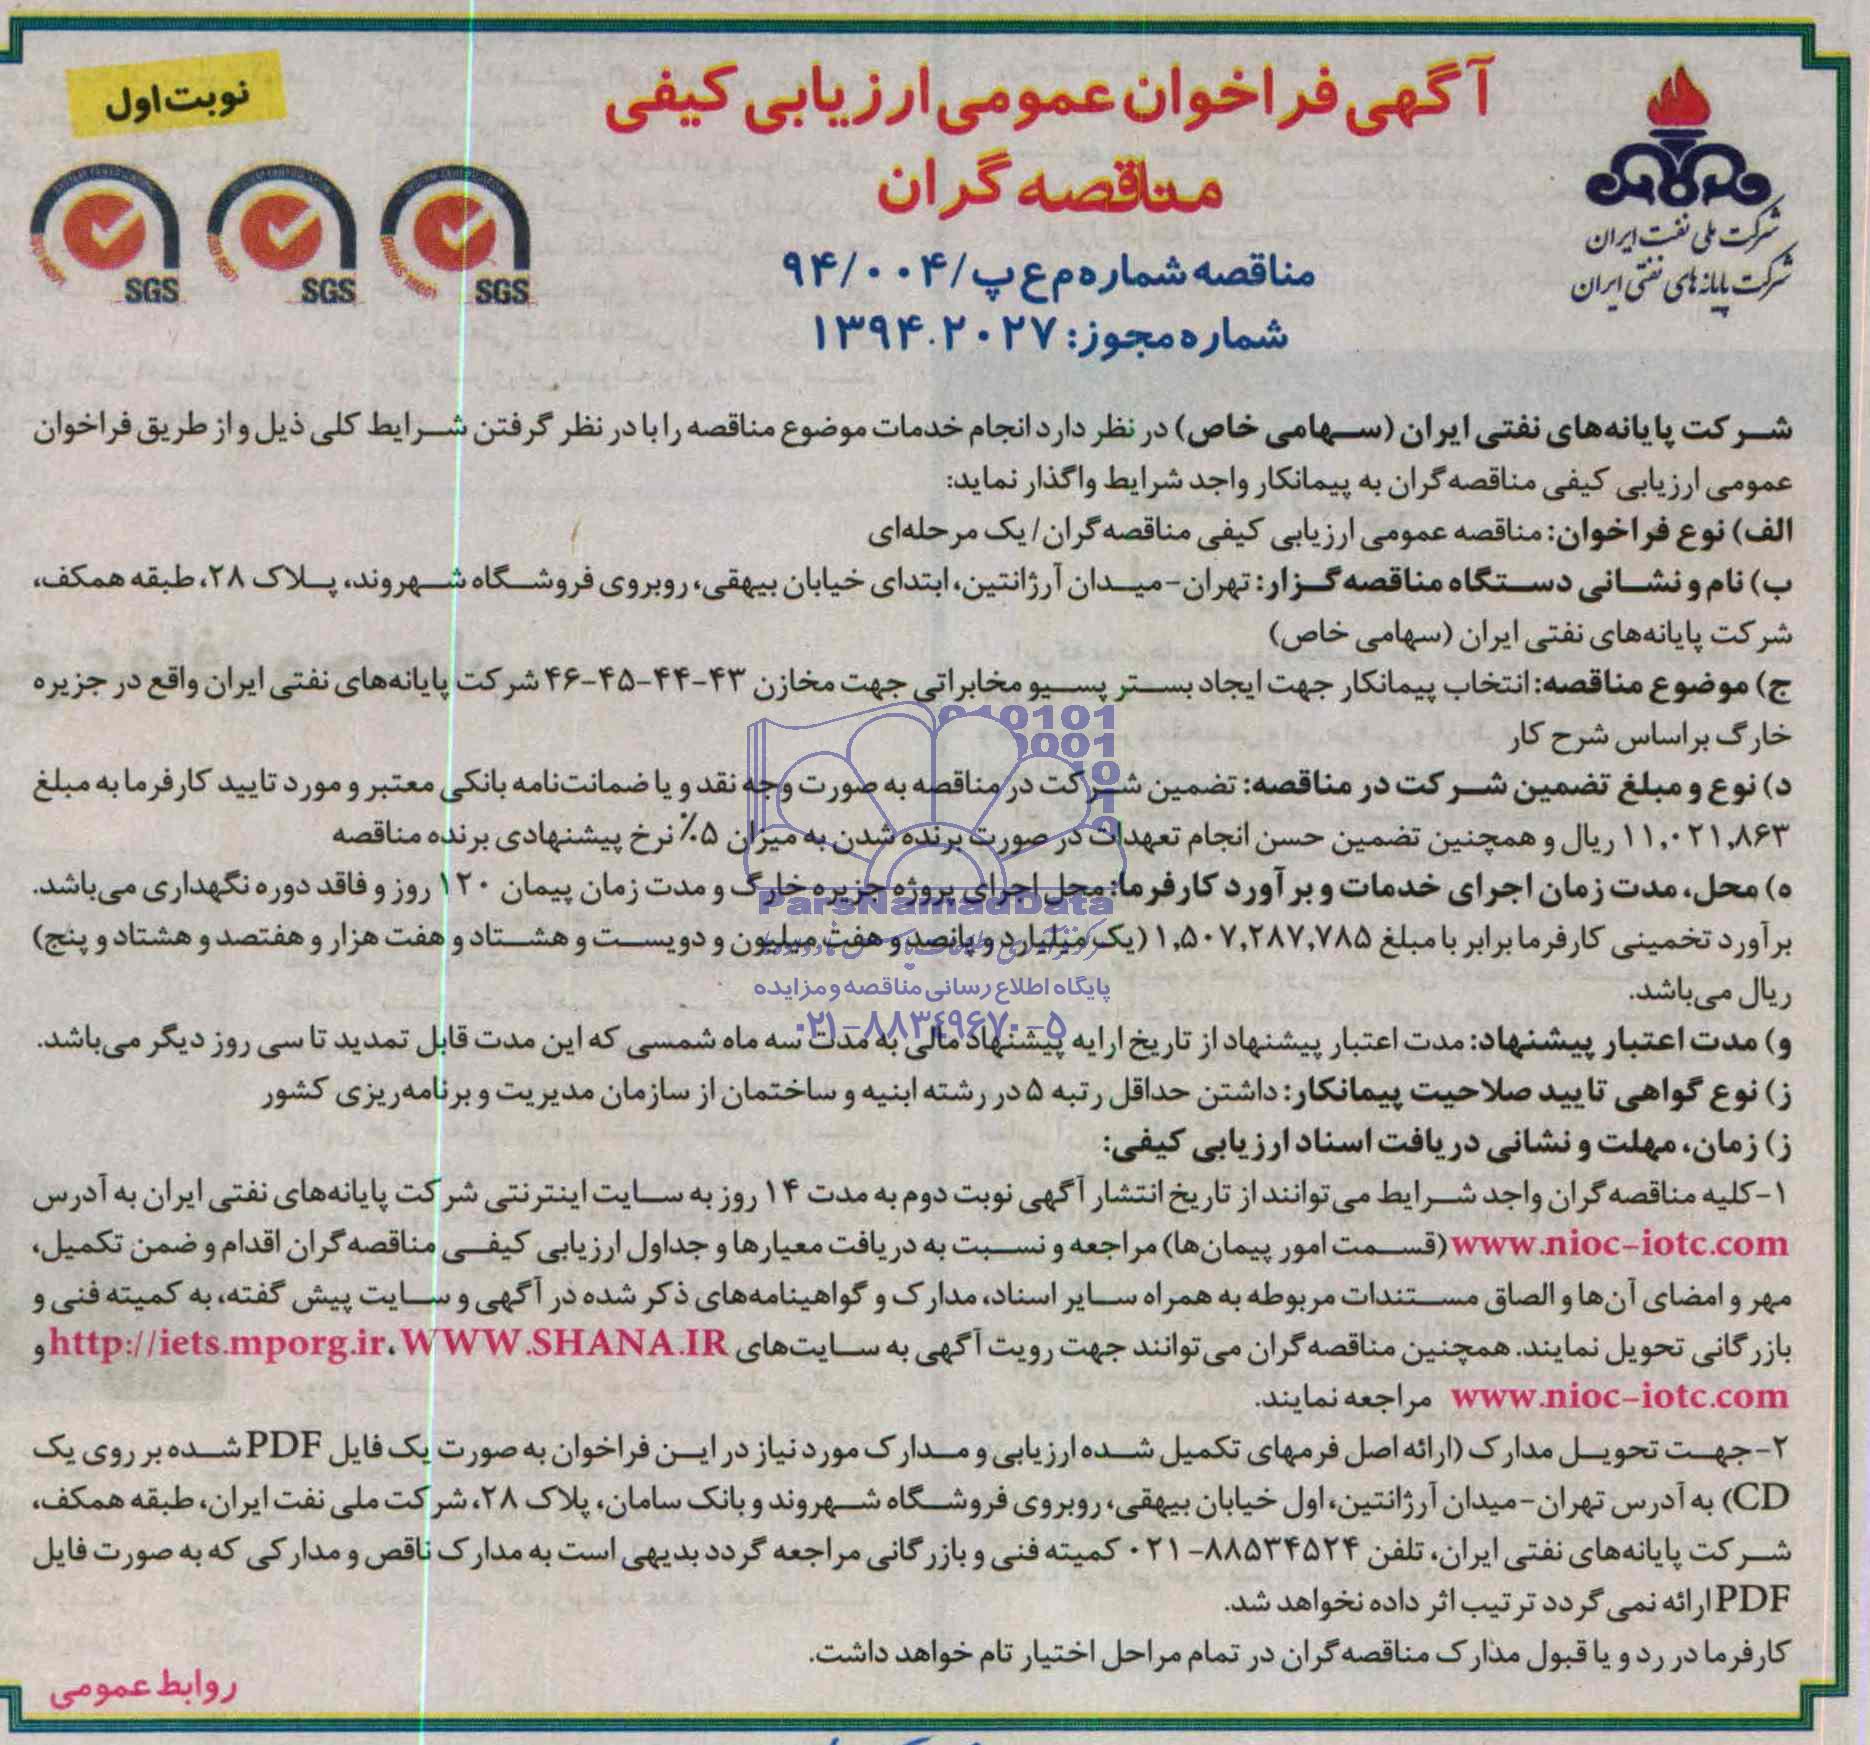 نوبت اول
آگهی فراخوان عمومی ارزیابی کیفی
مناقصه گران
مناقصه شماره م ع پ/۹۴/۰۰۴
شماره مجوز: ۱۳۹۴.۲۰۲۷
شرکت ملی نفت ایران
شرکت پایانه های نفتی ایران
SGS
SGS
SGS
شرکت پایانه‌های نفتی ایران (سهامی خاص) در نظر دارد انجام خدمات موضوع مناقصه را با در نظر گرفتن شرایط کلی ذیل و از طریق فراخوان
عمومی ارزیابی کیفی مناقصه‌گران به پیمانکار واجد شرایط واگذار نماید:
الف) نوع فراخوان: مناقصه عمومی ارزیابی کیفی مناقصه‌گران/ یک مرحله‌ای
ب) نام و نشانی دستگاه مناقصه‌گزار: تهران-میدان آرژانتین، ابتدای خیابان بیهقی، روبروی فروشگاه شهروند، پلاک ۲۸، طبقه همکف،
شرکت پایانه‌های نفتی ایران (سهامی خاص)
ج) موضوع مناقصه: انتخاب پیمانکار جهت ایجاد بستر پسیو مخابراتی جهت مخازن ۴۳-۴۴-۴۵-۴۶ شرکت پایانه‌های نفتی ایران واقع در جزیره
خارگ براساس شرح کار
د) نوع و مبلغ تضمین شرکت در مناقصه: تضمین شرکت در مناقصه به صورت وجه نقد و یا ضمانت‌نامه بانکی معتبر و مورد تایید کارفرما به مبلغ
۱۱,۰۲۱,۸۶۳ ریال و همچنین تضمین حسن انجام تعهدات در صورت برنده شدن به میزان ۵٪ نرخ پیشنهادی برنده مناقصه
ه) محل، مدت زمان اجرای خدمات و برآورد کارفرما: محل اجرای پروژه جزیره خارگ و مدت زمان پیمان ۱۲۰ روز و فاقد دوره نگهداری می‌باشد.
برآورد تخمینی کارفرما برابر با مبلغ ۱,۵۰۷,۲۸۷,۷۸۵ (یک میلیارد و پانصد و هفت میلیون و دویست و هشتاد و هفت هزار و هفتصد و هشتاد و پنج)
ریال می‌باشد.
و) مدت اعتبار پیشنهاد: مدت اعتبار پیشنهاد از تاریخ ارایه پیشنهاد مالی به مدت سه ماه شمسی که این مدت قابل تمدید تا سی روز دیگر می‌باشد.
ز) نوع گواهی تایید صلاحیت پیمانکار: داشتن حداقل رتبه ۵ در رشته ابنیه و ساختمان از سازمان مدیریت و برنامه‌ریزی کشور
ز) زمان، مهلت و نشانی دریافت اسناد ارزیابی کیفی:
۱-کلیه مناقصه‌گران واجد شرایط می‌توانند از تاریخ انتشار آگهی نوبت دوم به مدت ۱۴ روز به سایت اینترنتی شرکت پایانه‌های نفتی ایران به آدرس
www.nioc-iotc.com (قسمت امور پیمان‌ها) مراجعه و نسبت به دریافت معیارها و جداول ارزیابی کیفی مناقصه‌گران اقدام و ضمن تکمیل،
مهر و امضای آن‌ها و الصاق مستندات مربوطه به همراه سایر اسناد، مدارک و گواهینامه‌های ذکر شده در آگهی و سایت پیش گفته، به کمیته فنی و
بازرگانی تحویل نمایند. همچنین مناقصه‌گران می‌توانند جهت رویت آگهی به سایت‌های WWW.SHANA.IR، http://iets.mporg.ir و
www.nioc-iotc.com مراجعه نمایند.
۲-جهت تحویل مدارک (ارائه اصل فرمهای تکمیل شده ارزیابی و مدارک مورد نیاز در این فراخوان به صورت یک فایل PDF شده بر روی یک
CD) به آدرس تهران-میدان آرژانتین، اول خیابان بیهقی، روبروی فروشگاه شهروند و بانک سامان، پلاک ۲۸، شرکت ملی نفت ایران، طبقه همکف،
شرکت پایانه‌های نفتی ایران، تلفن ۸۸۵۳۴۵۲۴-۰۲۱ کمیته فنی و بازرگانی مراجعه گردد بدیهی است به مدارک ناقص و مدارکی که به صورت فایل
PDF ارائه نمی‌گردد ترتیب اثر داده نخواهد شد.
کارفرما در رد و یا قبول مدارک مناقصه‌گران در تمام مراحل اختیار تام خواهد داشت.
روابط عمومی
ParsNamadData
پایگاه اطلاع رسانی مناقصه و مزایده
۰۲۱-۸۸۳۴۹۶۷۰-۵